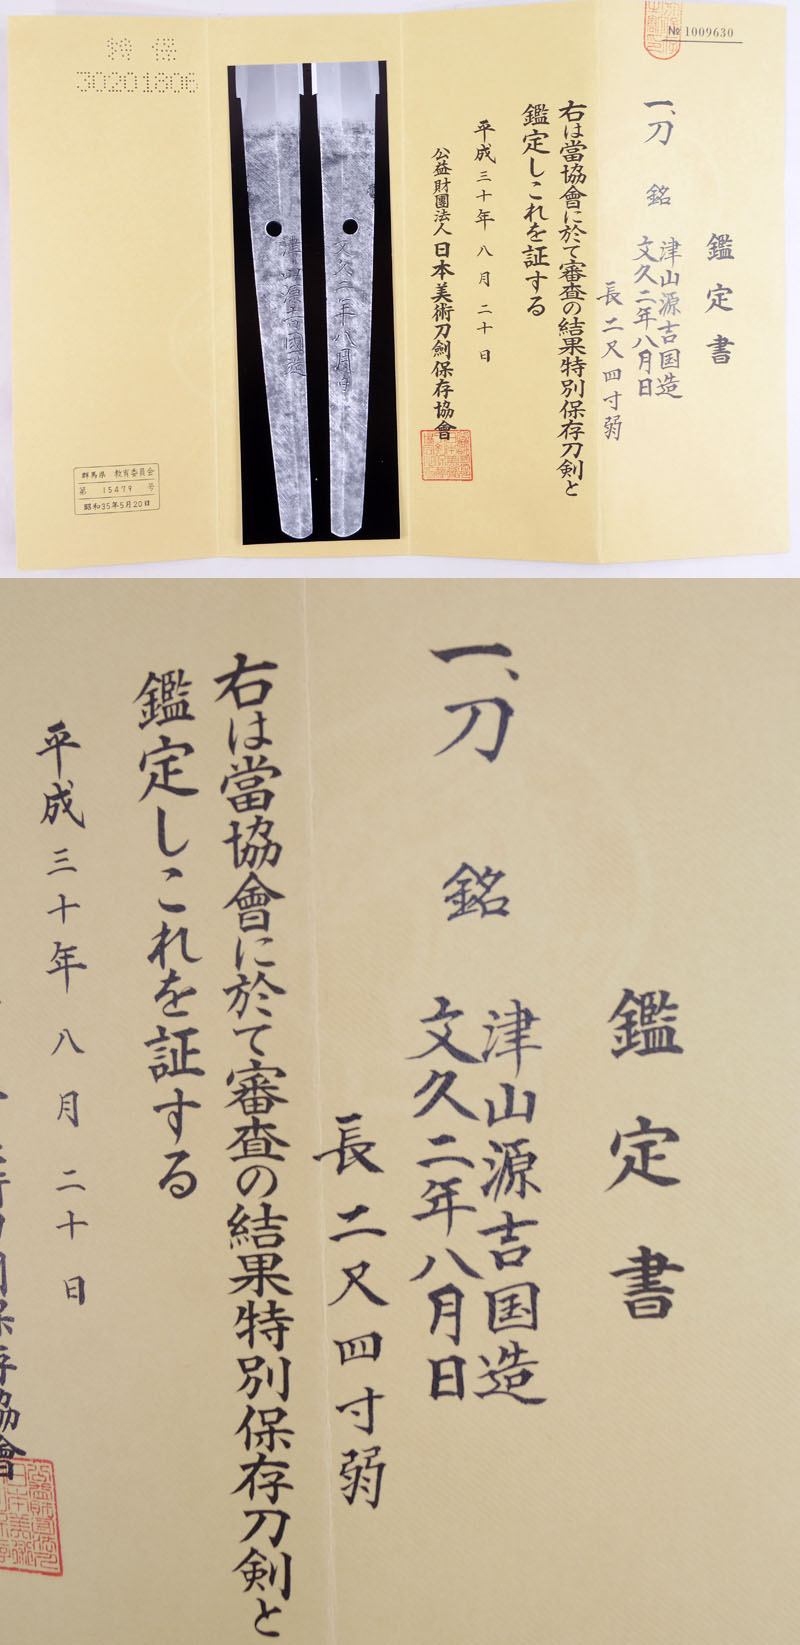 № 1009630
鑑定書
一、刀 銘 津山源吉国造
文久二年八月日
長二尺四寸弱
右は當協會に於て審査の結果特別保存刀剣と
鑑定しこれを証する
平成三十年八月二十日
公益財團法人日本美術刀劍保存協會
文久二年八月日
津山源吉國造
特保
30201806
群馬県 教育委員会
第 15479 号
昭和35年5月20日
鑑定書
一、刀 銘 津山源吉国造
文久二年八月日
長二尺四寸弱
右は當協會に於て審査の結果特別保存刀剣と
鑑定しこれを証する
平成三十年八月二十日
保存協會